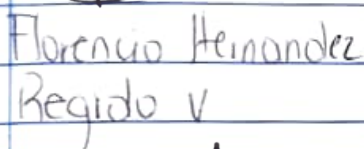 Florencio Hernandez
Regido V